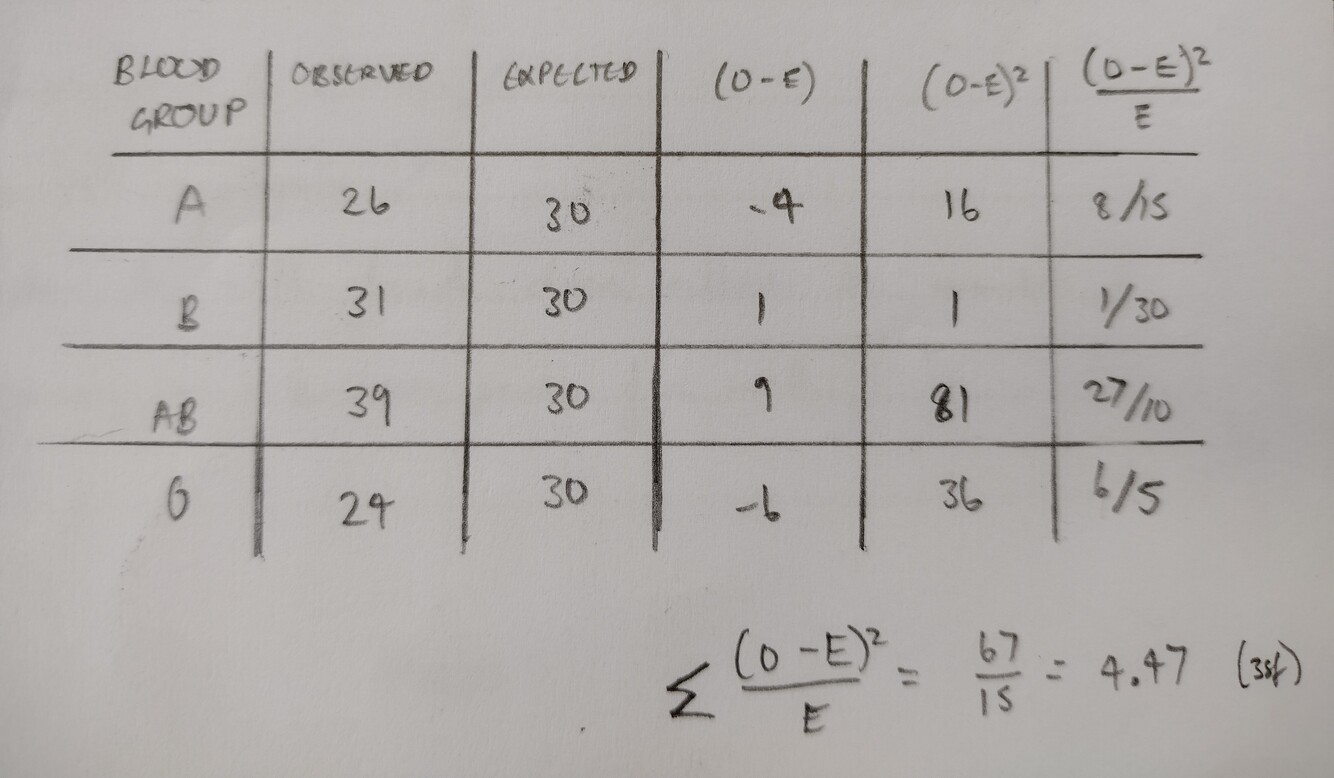 BLOOD GROUP | OBSERVED | EXPECTED | (O-E) | (O-E)² | (O-E)²/E
A | 26 | 30 | -4 | 16 | 8/15
B | 31 | 30 | 1 | 1 | 1/30
AB | 39 | 30 | 9 | 81 | 27/10
O | 24 | 30 | -6 | 36 | 6/5
Σ (O-E)²/E = 67/15 = 4.47 (3sf)